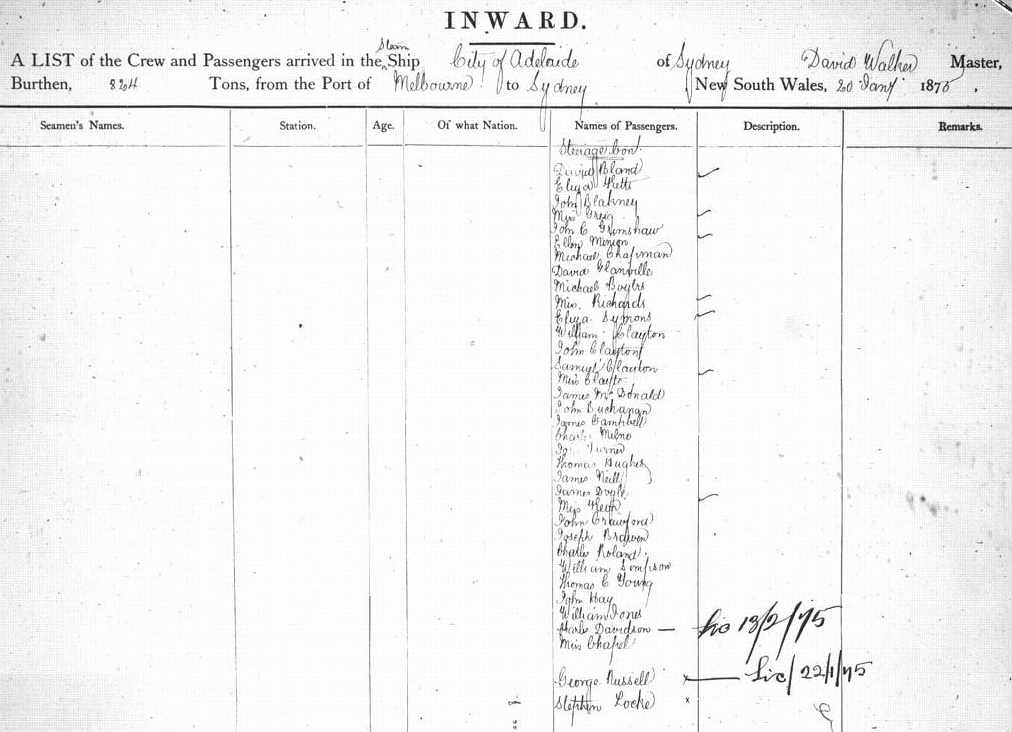 INWARD.
Steam
A LIST of the Crew and Passengers arrived in the Ship City of Adelaide of Sydney David Walker Master,
Burthen, 824 Tons, from the Port of Melbourne to Sydney New South Wales, 20 Jany 1875,
Seamen's Names. Station. Age. Of what Nation. Names of Passengers. Description. Remarks.
Steerage Con.
David Bland
Eliza
John Blakney
Miss Greig
John C Grimshaw
Ellen Minion
Michael Chapman
David Glanville
Michael
Mrs. Richards
Eliza Symons
William Clayton
John Clayton
Samuel Clayton
Miss
James McDonald
John Buchanan
James Campbell
Charles Milne
Turner
Thomas Hughes
James Neill
James Doyle
Miss
John Crawford
Joseph
Charles Roland
William Simpson
Thomas C Young
John Hay
William Jones
Charles Davidson — 13/2/75
Miss Chapel
George Russell x — 22/1/75
Stephen Locke x